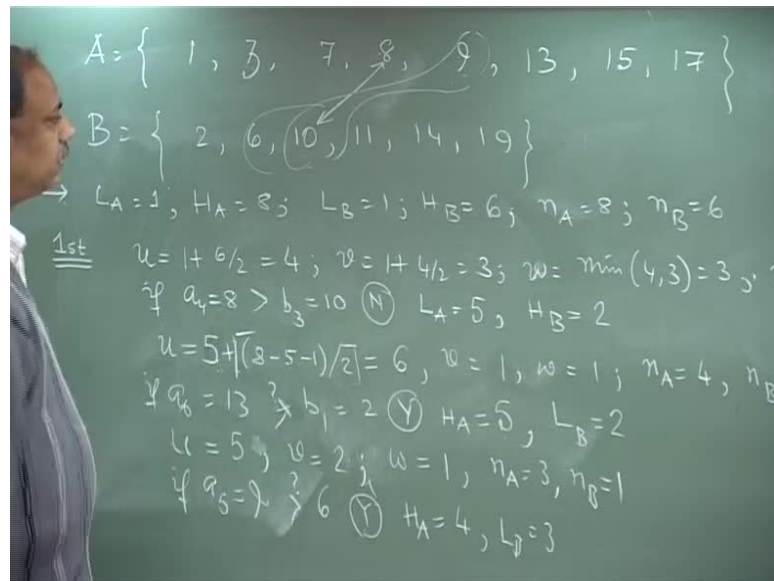 A = { 1, 3, 7, 8, 9, 13, 15, 17 }
B = { 2, 6, 10, 11, 14, 19 }
→ L_A = 1, H_A = 8; L_B = 1; H_B = 6; n_A = 8; n_B = 6
1st u = 1 + 6/2 = 4; v = 1 + 4/2 = 3; w = min(4,3) = 3;
if a_4 = 8 > b_3 = 10 (N) L_A = 5, H_B = 2
u = 5 + ⌈(8-5-1)/2⌉ = 6, v = 1, w = 1; n_A = 4, n_B
if a_6 = 13 ?> b_1 = 2 (Y) H_A = 5, L_B = 2
u = 5, v = 2; w = 1, n_A = 3, n_B = 1
if a_5 = 9 ?> 6 (Y) H_A = 4, L_B = 3